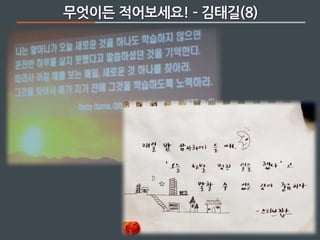 무엇이든 적어보세요! - 김태길(8)
나는 할머니가 오늘 새로운 것을 하나도 학습하지 않으면
온전한 하루를 살지 못했다고 말씀하셨던 것을 기억한다.
따라서 아침 해를 보는 매일, 새로운 것 하나를 찾아라.
그것을 찾아서 해가 지기 전에 그것을 학습하도록 노력하라.
매일 밤 잠자리에 들 때,
'오늘 정말 멋진 일을 했다' 고
말할 수 있는 것이 중요하다
- 스티브 잡스